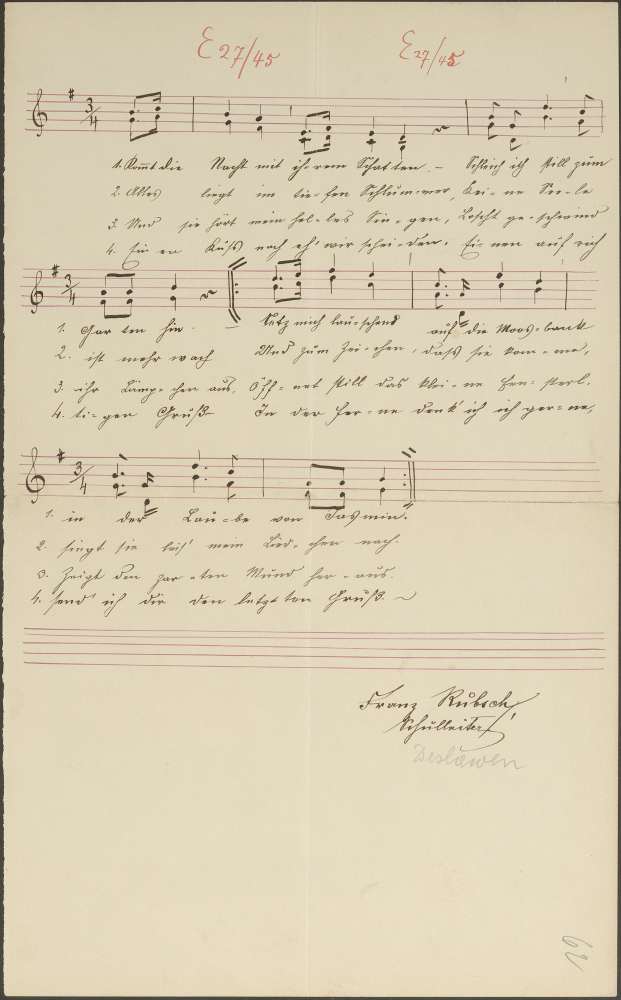 E 27/45 E 27/45
3/4
1. Kommt die Nacht mit ih-rem Schat-ten. – Schleich ich still zum
2. Alles liegt im tie-fen Schlum-mer, Kei-ne See-le
3. Und sie hört mein hel-les Sin-gen, Löscht ge-schwind
4. Ein en Kuß noch eh' wir schei-den. Ei-nen auf rich
3/4
1. Gar ten hin. – Setz mich lau-schend auf die Moos-bank
2. ist mehr wach Und zum Zei-chen, daß sie kom-me,
3. ihr Lämp-chen aus, Öff-net still das klei-ne Fen-sterl.
4. ti-gen Gruß – In der Fer-ne denk' ich ich ger-ne,
3/4
1. in der Lau-be von Jasmin.
2. singt sie leis' mein Lied-chen nach.
3. Zeigt den zar-ten Mund her-aus.
4. send' ich dir den letzt ten Gruß.
Franz Rubsch
Schulleiter
Deslawen
62